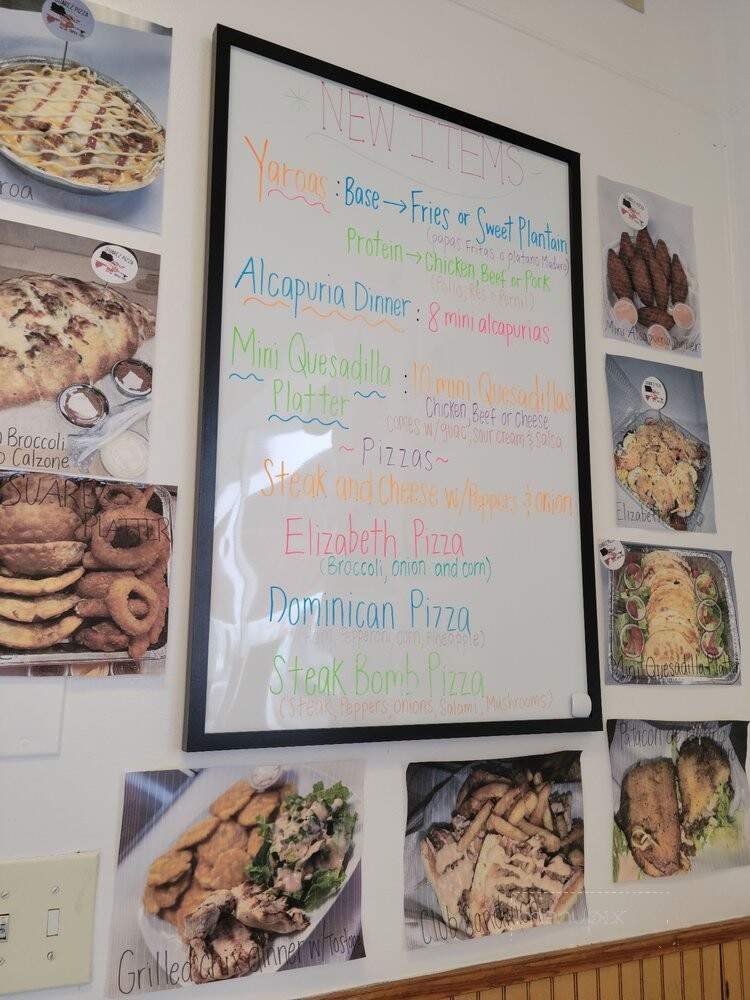 NEW ITEMS
Yaroas : Base → Fries or Sweet Plantain
(papas Fritas o platano Maduro)
Protein → Chicken, Beef or Pork
(Pollo, Res o Pernil)
Alcapuria Dinner : 8 mini alcapurias
Mini Quesadilla Platter : 10 mini Quesadillas
Chicken, Beef or Cheese
comes w/ guac, sour cream & salsa
~ Pizzas ~
Steak and Cheese w/Peppers & onion
Elizabeth Pizza
(Broccoli, onion and corn)
Dominican Pizza
(Ham, Pepperoni, corn, Pineapple)
Steak Bomb Pizza
(Steak, Peppers, onions, Salami, Mushrooms)
SUAREZ PIZZA
roa
SUAREZ PIZZA
Broccoli
Calzone
SUAREZ
PLATTER
Mini Alcapuria Dinner
Elizabeth
Mini Quesadilla Platter
Grilled chix dinner w/ Tosto
Club Sandwich
menupix